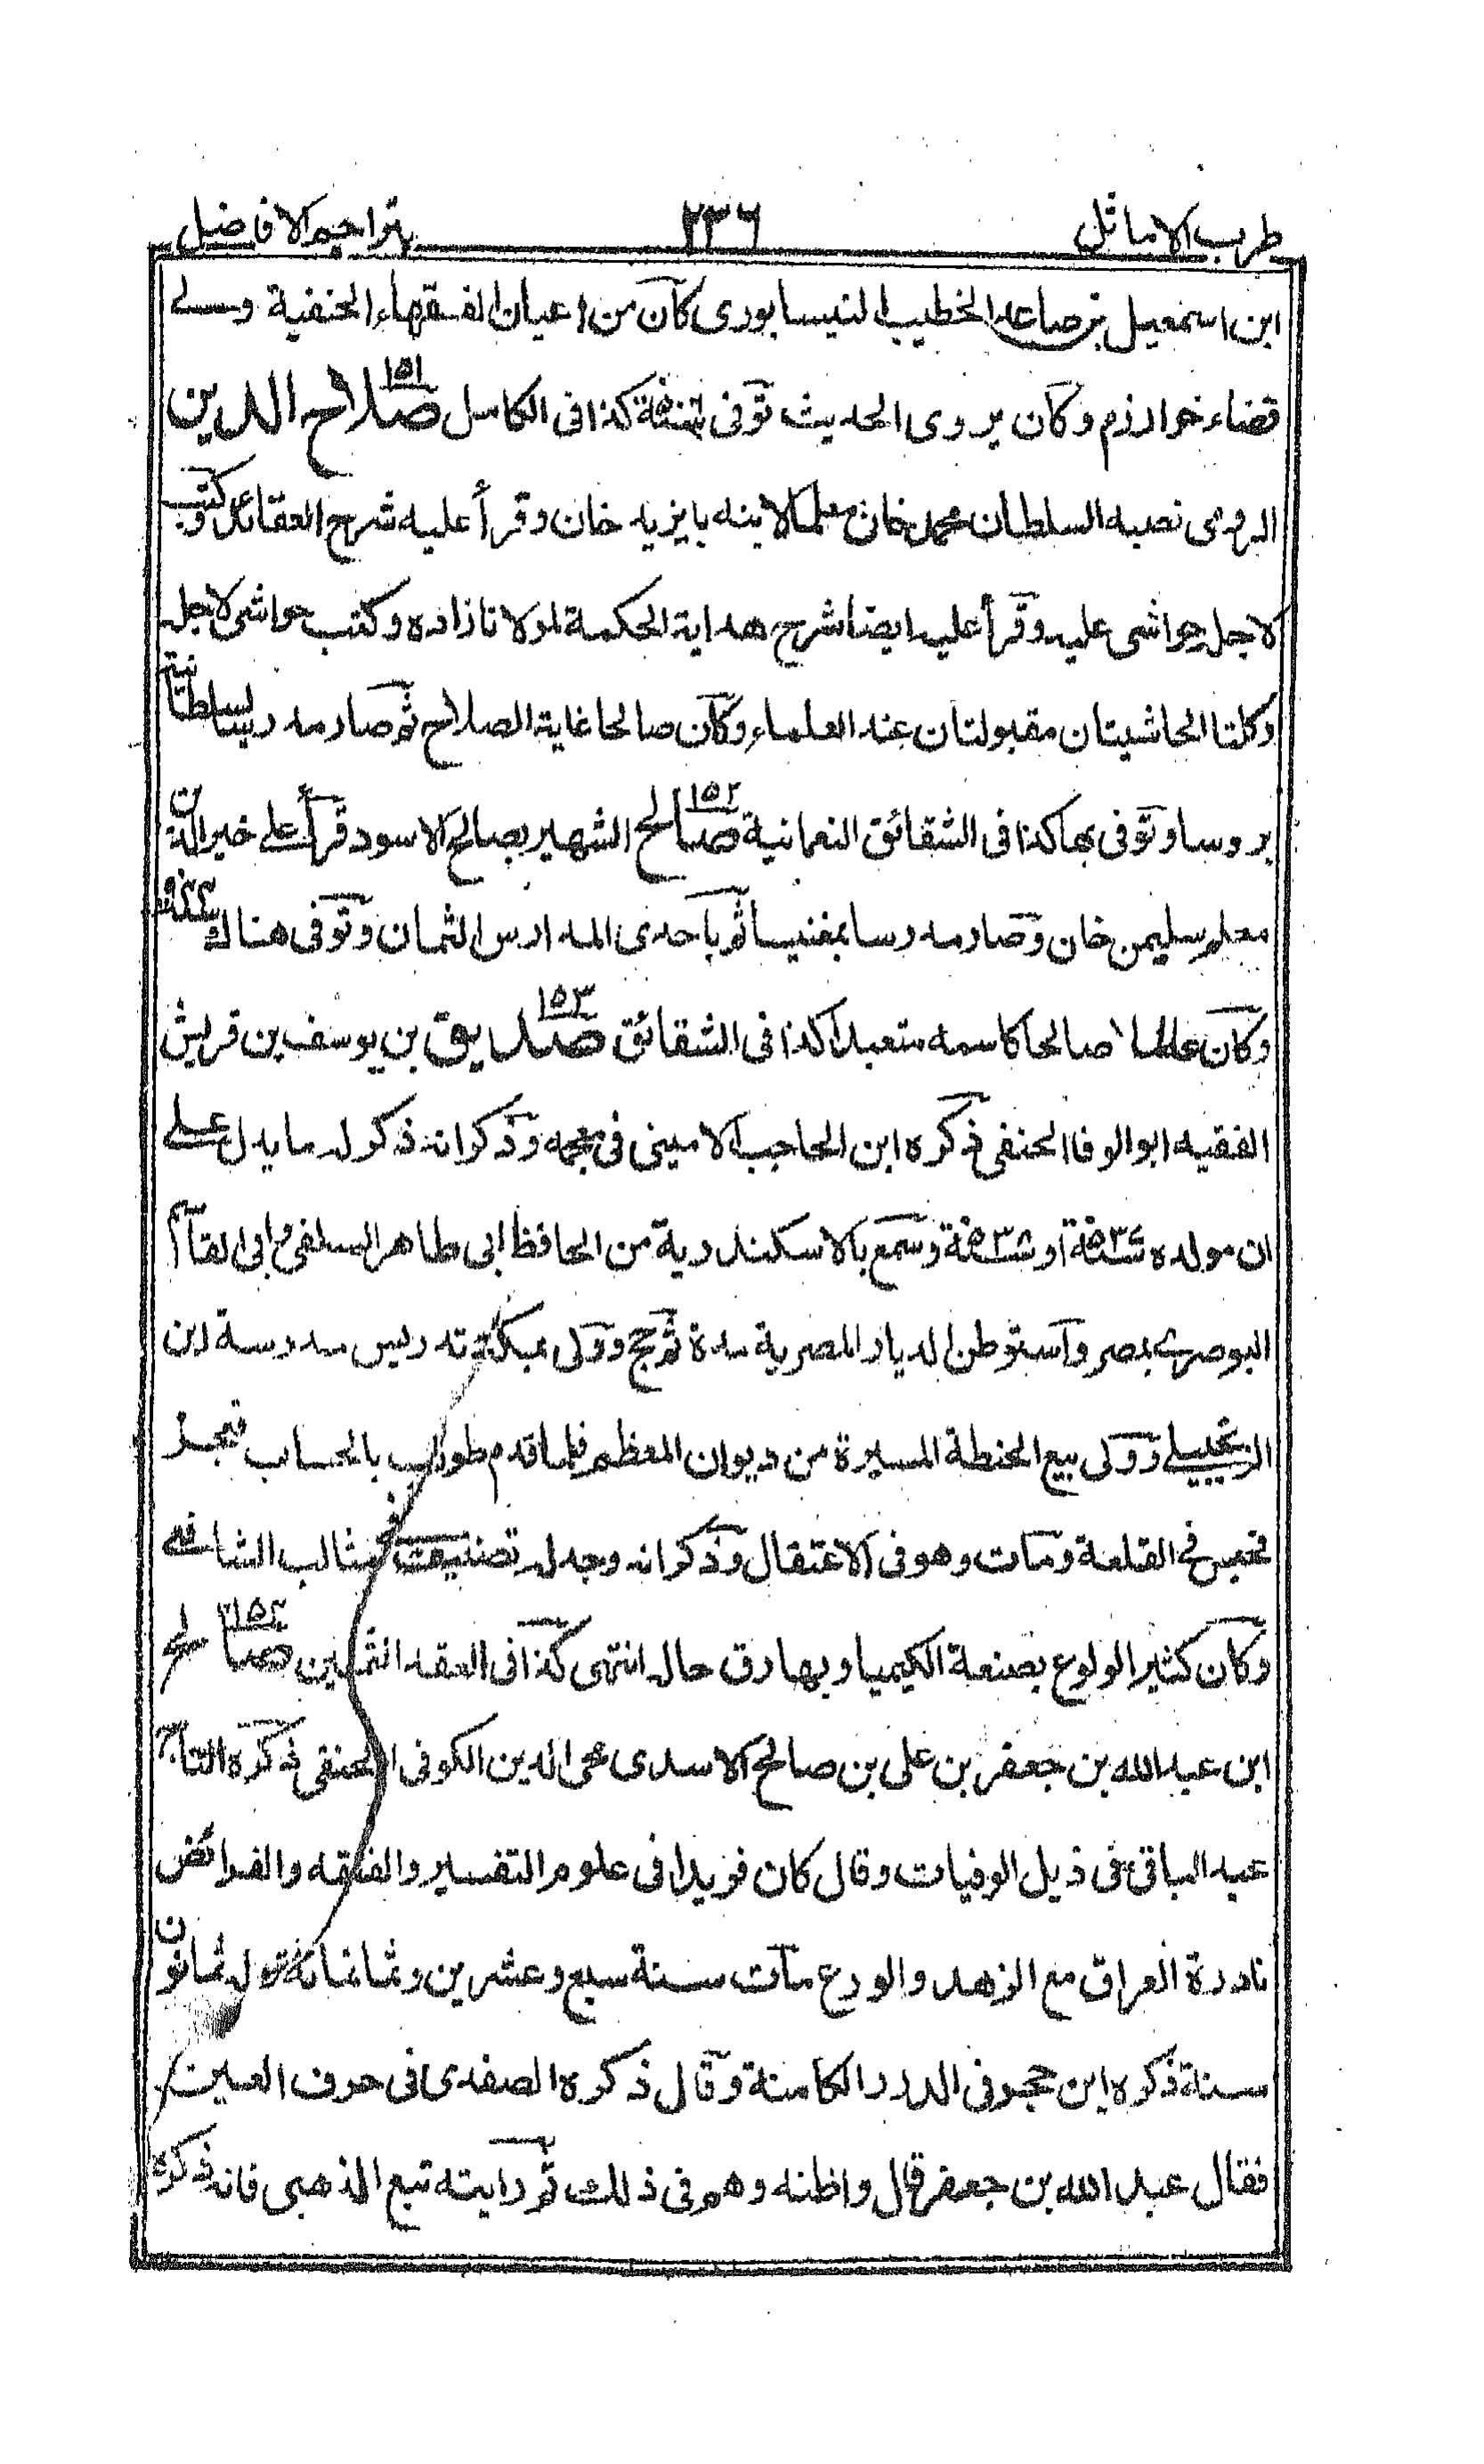 طرب الاماثل ٢٣٦ بتراجم الافاضل
ابن اسمعيل بن صاعد الخطيب النيسابورى كان من اعيان الفقهاء الحنفية ولے
قضاء خوارزم وكان يروى الحديث توفى كذا فى الكامل ١٥١ صلاح الدين
الرومى نصبه السلطان محمد خان معلما لابنه بايزيد خان وقرأ عليه شرح العقائد وكتب
لاجل حواشى عليه وقرأ عليه ايضا شرح هداية الحكمة لمولانا زاده وكتب حواشى لاجل
وكلتا الحاشيتان مقبولتان عند العلماء وكان صالحا غاية الصلاح ثم صار مدرسا بسلطانية
بروسا وتوفى بها كذا فى الشقائق النعمانية ١٥٢ صالح الشهير بصالح الاسود قرأ على خير الدين
معلم سليمن خان وصار مدرسا بمغنيسا ثم باحدى المدارس الثمان وتوفى هناك
وكان عالما صالحا كاسمه متعبدا كذا فى الشقائق ١٥٣ صديق بن يوسف بن قريش
الفقيه ابو الوفا الحنفى ذكره ابن الحاجب الامينى فى معجمه وذكر انه ذكر له ما يدل على
ان مولده ٥٣٤ او ٥٣٨ وسمع بالاسكندرية من الحافظ ابى طاهر السلفى و ابى القاسم
البوصرے بمصر واستوطن الديار المصرية مدة ثم حج وولى بمكة تدريس مدرسة ابن
الزنجيلے وولى بيع الحنطة المسيرة من ديوان المعظم فلما قدم طولب بالحساب فعجز
فحبس فى القلعة ومات وهو فى الاعتقال وذكر انه وجد له تصنيف فى مثالب الشافعے
وكان كثير الولوع بصنعة الكيميا وبها رق حاله انتهى كذا فى العقد الثمين ١٥٤ صالح
ابن عبد الله بن جعفر بن على بن صالح الاسدى محى الدين الكوفى الحنفى ذكره التاج
عبد الباقى فى ذيل الوفيات وقال كان فريدا فى علوم التفسير والفقه والفرائض
نادرة العراق مع الزهد والورع مات سنة سبع وعشرين وثمانمائة وله ثمانون
سنة ذكره ابن حجر فى الدرر الكامنة وقال ذكره الصفدى فى حرف العين
فقال عبد الله بن جعفر قال واظنه وهم فى ذلك ثم رايته تبع الذهبى فانه ذكره